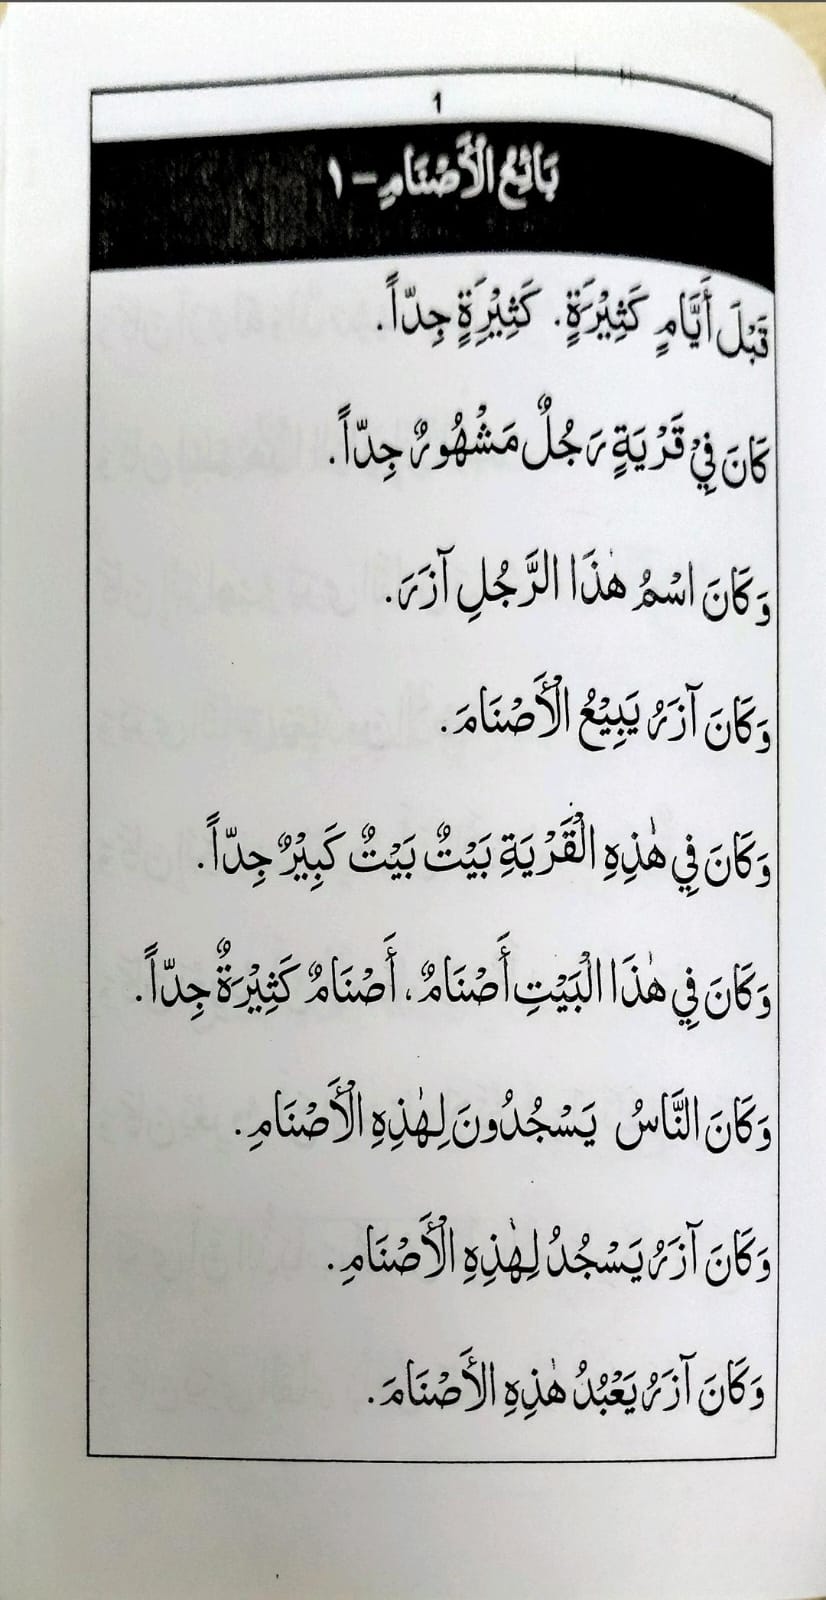 1
بَائِعُ الْأَصْنَامِ - ١
قَبْلَ أَيَّامٍ كَثِيْرَةٍ. كَثِيْرِةٍ جِدّاً.
كَانَ فِيْ قَرْيَةٍ رَجُلٌ مَشْهُورٌ جِدّاً.
وَكَانَ اسْمُ هٰذَا الرَّجُلِ آزَرَ.
وَكَانَ آزَرُ يَبِيْعُ الْأَصْنَامَ.
وَكَانَ فِي هٰذِهِ الْقَرْيَةِ بَيْتٌ بَيْتٌ كَبِيْرٌ جِدّاً.
وَكَانَ فِي هٰذَا الْبَيْتِ أَصْنَامٌ، أَصْنَامٌ كَثِيْرَةٌ جِدّاً.
وَكَانَ النَّاسُ يَسْجُدُونَ لِهٰذِهِ الْأَصْنَامِ.
وَكَانَ آزَرُ يَسْجُدُ لِهٰذِهِ الْأَصْنَامِ.
وَكَانَ آزَرُ يَعْبُدُ هٰذِهِ الأَصْنَامَ.